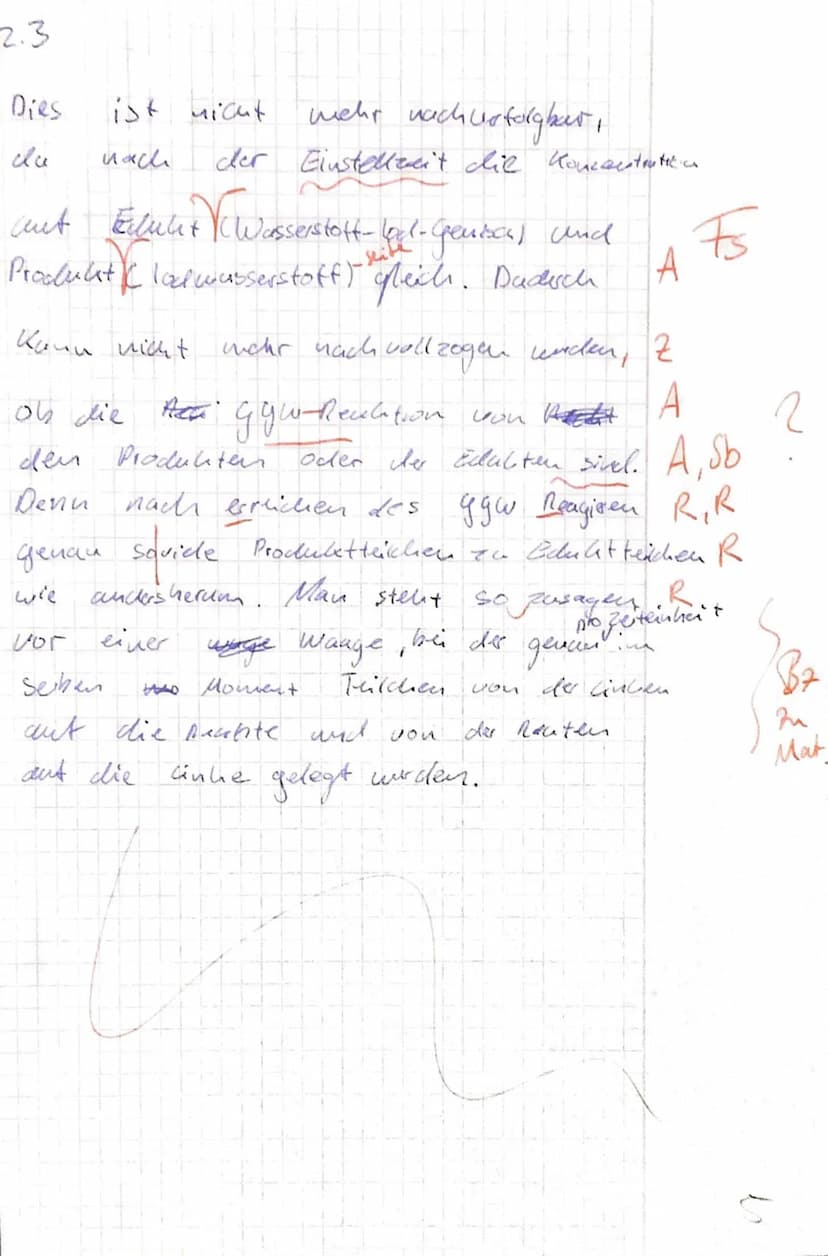 2.3
Dies ist nicht mehr nachverfolgbar,
da nach der Einstellzeit die Konzentration
auf Edukt (Wasserstoff-Iod-Gemisch) und Fs
Produkt (Iodwasserstoff)-seite gleich. Dadurch A
Kann nicht mehr nachvollzogen werden, Z
ob die GGW-Reaktion von A ?
den Produkten oder der Edukten sind. A, Sb
Denn nach erreichen des GGW Reagiren R, R
genau soviele Produktteilchen zu Eduktteilchen R
wie andersherum. Man steht so zusagen R
pro Zeiteinheit
vor einer Waage, bei der genau im
selben Moment Teilchen von der linken Bz
auf die Rechte und von der Rechten zu
auf die linke gelegt werden. Mat.
5